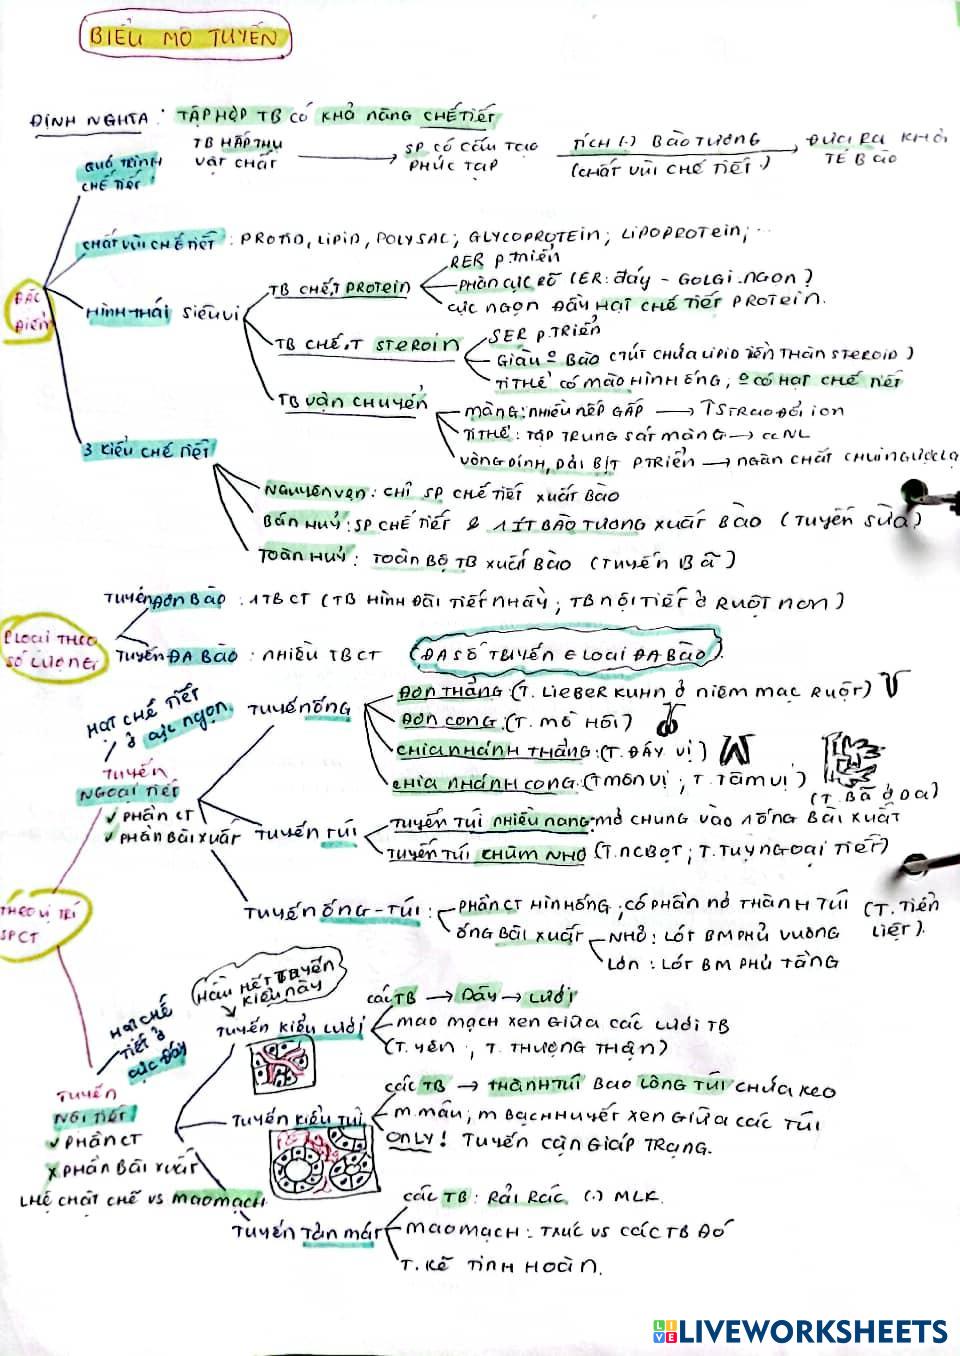 BIỂU MÔ TUYẾN
ĐỊNH NGHĨA : TẬP HỢP TB CÓ KHẢ NĂNG CHẾ TIẾT
QUÁ TRÌNH CHẾ TIẾT
TB HẤP THU VẬT CHẤT → SP CÓ CẤU TẠO PHỨC TẠP → TÍCH (.) BÀO TƯƠNG (CHẤT VÙI CHẾ TIẾT.) → ĐƯA RA KHỎI TẾ BÀO
ĐẶC ĐIỂM
CHẤT VÙI CHẾ TIẾT : PROTID, LIPID, POLYSAC; GLYCOPROTEIN; LIPOPROTEIN; ...
HÌNH THÁI SIÊU VI
TB CHẾ.T PROTEIN
RER P.TRIỂN
PHÂN CỰC RÕ (ER: ĐÁY - GOLGI: NGỌN)
CỰC NGỌN ĐẦY HẠT CHẾ TIẾT PROTEIN.
TB CHẾ.T STEROIN
SER P.TRIỂN
TI THỂ CÓ MÀO HÌNH ỐNG; º CÓ HẠT CHẾ TIẾT
TB VẬN CHUYỂN
MÀNG: NHIỀU NẾP GẤP → ↑S TRAO ĐỔI ION
TI THỂ: TẬP TRUNG SÁT MÀNG → CCNL
VÒNG DÍNH, DẢI BỊT P TRIỂN → NGĂN CHẤT CHUI NGƯỢC LẠI
3 KIỂU CHẾ TIẾT
NGUYÊN VẸN : CHỈ SP CHẾ TIẾT XUẤT BÀO
BÁN HUỶ : SP CHẾ TIẾT & 1 ÍT BÀO TƯƠNG XUẤT BÀO (TUYẾN SỮA)
TOÀN HUỶ : TOÀN BỘ TB XUẤT BÀO (TUYẾN BÃ)
P LOẠI THEO SỐ LƯỢNG
TUYẾN ĐƠN BÀO : 1 TBCT (TB HÌNH ĐÀI TIẾT NHẦY ; TB NỘI TIẾT Ở RUỘT NON)
TUYẾN ĐA BÀO : NHIỀU TBCT (ĐA SỐ TUYẾN ∈ LOẠI ĐA BÀO).
THEO VỊ TRÍ SPCT
HẠT CHẾ TIẾT Ở CỰC NGỌN.
TUYẾN NGOẠI TIẾT
✓ PHẦN CT
✓ PHẦN BÀI XUẤT
TUYẾN ỐNG
ĐƠN THẲNG : (T. LIEBERKUHN Ở NIÊM MẠC RUỘT)
ĐƠN CONG : (T. MỒ HÔI)
CHIA NHÁNH THẲNG : (T. ĐÁY VỊ)
CHIA NHÁNH CONG : (T MÔN VỊ ; T. TÂM VỊ)
TUYẾN TÚI
(T. BÃ Ở DA)
TUYẾN TÚI NHIỀU NANG : MỞ CHUNG VÀO 1 ỐNG BÀI XUẤT
TUYẾN TÚI CHÙM NHO (T. NCBỌT ; T. TUỴ NGOẠI TIẾT)
TUYẾN ỐNG - TÚI :
PHẦN CT HÌNH ỐNG ; CÓ PHẦN NỞ THÀNH TÚI (T. TIỀN LIỆT).
ỐNG BÀI XUẤT
NHỎ : LÓT BM PHỦ VUÔNG
LỚN : LÓT BM PHỦ TẦNG
HẦU HẾT TUYẾN KIỂU NÀY
HẠT CHẾ TIẾT Ở CỰC ĐÁY
TUYẾN NỘI TIẾT
✓ PHẦN CT
X PHẦN BÀI XUẤT
LHỆ CHẶT CHẼ VS MAO MẠCH
TUYẾN KIỂU LƯỚI
CÁC TB → DÂY → LƯỚI
MAO MẠCH XEN GIỮA CÁC LƯỚI TB
(T. YÊN ; T. THƯỢNG THẬN)
TUYẾN KIỂU TÚI
CÁC TB → THÀNH TÚI BAO LÒNG TÚI CHỨA KEO
M. MÁU ; M BẠCH HUYẾT XEN GIỮA CÁC TÚI
ONLY! TUYẾN CẬN GIÁP TRẠNG.
TUYẾN TẢN MÁT
CÁC TB : RẢI RÁC (.) MLK.
MAO MẠCH : TRỰC VS CÁC TB ĐÓ
T. KẼ TINH HOÀN.
LIVEWORKSHEETS